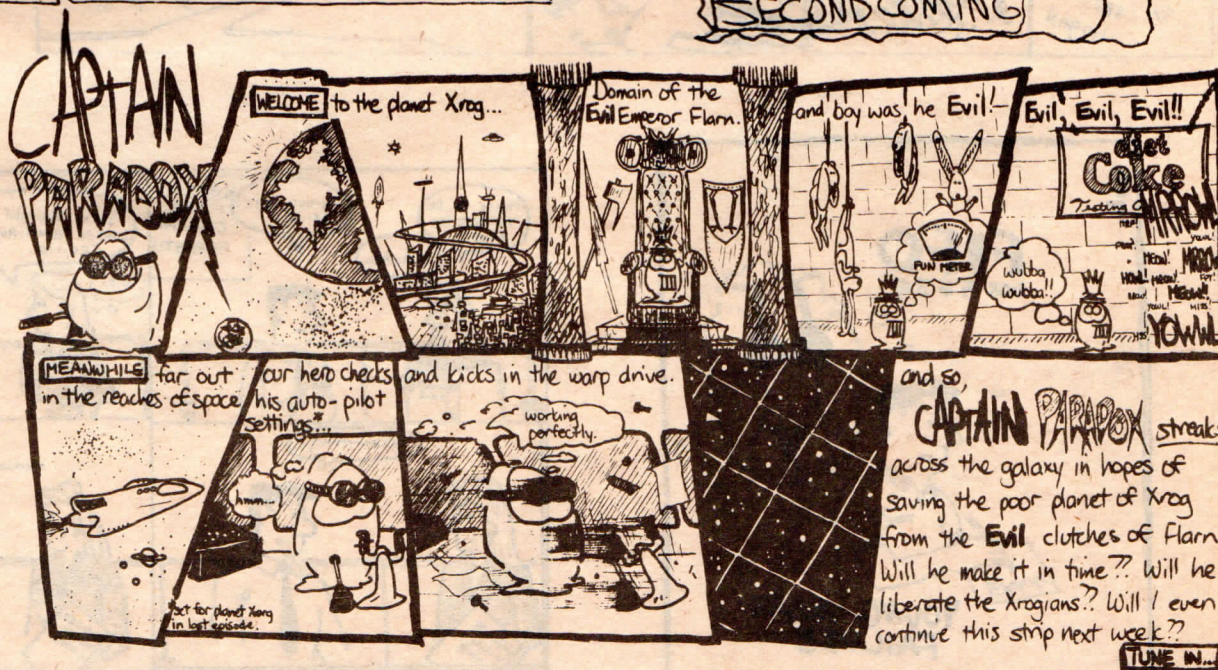 SECOND COMING
CAPTAIN
PARADOX
WELCOME to the planet Xrog...
Domain of the
Evil Emperor Flarn.
and boy was he Evil!
FUN METER
Evil, Evil, Evil!!
diet
Coke
Testing
MRROW
MEOW!
HOWL!
YOWL!
wubba
wubba!!
YOWWL
MEANWHILE far out
in the reaches of space
our hero checks
his auto-pilot
settings*...
hmm...
*set for planet Xrong
in last episode.
and kicks in the warp drive.
working
perfectly.
and so,
CAPTAIN PARADOX streak
across the galaxy in hopes of
saving the poor planet of Xrog
from the Evil clutches of Flarn
Will he make it in time?? Will he
liberate the Xrogians?? Will I even
continue this strip next week??
TUNE IN...